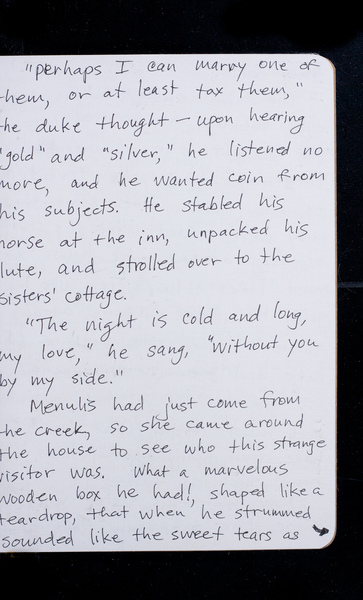 "perhaps I can marry one of
them, or at least tax them,"
the duke thought — upon hearing
"gold" and "silver," he listened no
more, and he wanted coin from
his subjects. He stabled his
horse at the inn, unpacked his
lute, and strolled over to the
sisters' cottage.
"The night is cold and long,
my love," he sang, "without you
by my side."
Menulis had just come from
the creek, so she came around
the house to see who this strange
visitor was. What a marvelous
wooden box he had!, shaped like a
teardrop, that when he strummed
sounded like the sweet tears as